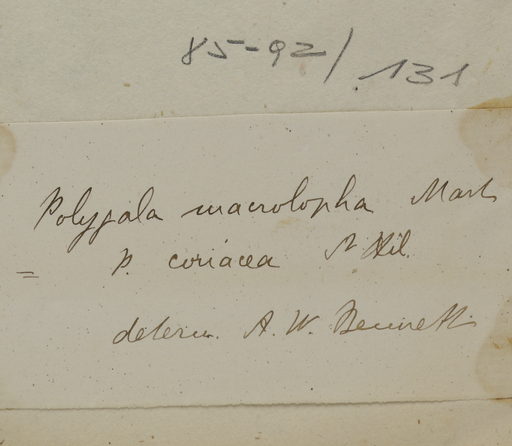 85-92/131
Polygala macrolopha Mart
= P. coriacea St Hil.
determ. A. W. Bennett.